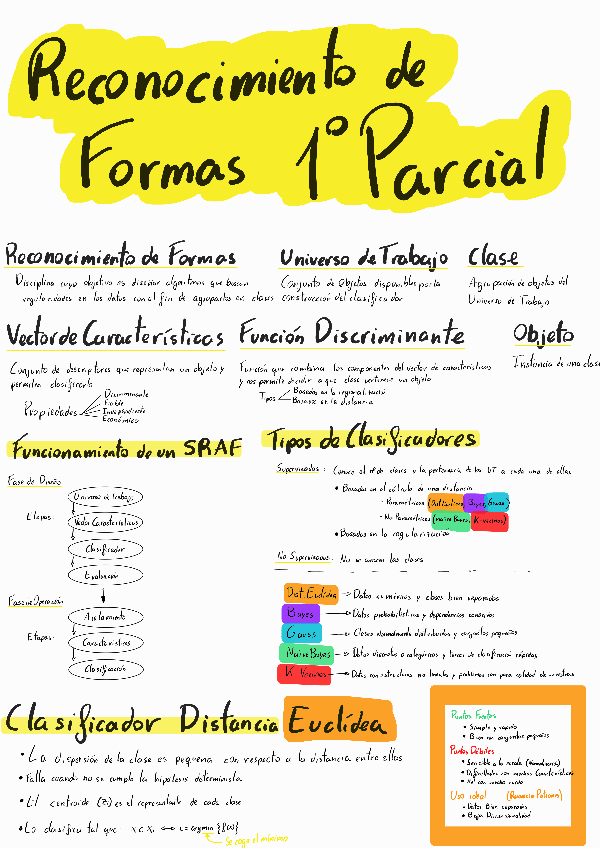 Reconocimiento de
Formas 1º Parcial
Reconocimiento de Formas
Disciplina cuyo objetivo es diseñar algoritmos que buscan
regularidades en los datos con el fin de agruparlos en clases
Universo de Trabajo
Conjunto de Objetos disponibles para la
construcción del clasificador
Clase
Agrupación de objetos del
Universo de Trabajo
Vector de Características
Conjunto de descriptores que representan un objeto y
permiten clasificarlo
Propiedades
Discriminante
Fiable
Independiente
Económico
Función Discriminante
Función que combina los componentes del vector de características
y nos permite decidir a que clase pertenece un objeto
Tipos
Basados en la regional
Basados en la distancia
Objeto
Instancia de una clase
Funcionamiento de un SRAF
Fase de Diseño
Etapas:
Universo de trabajo
Vector Características
Clasificador
Evaluación
Fase de Operación
Etapas:
Aislamiento
Características
Clasificación
Tipos de Clasificadores
Supervisados: Conoce el nº de clases y la pertenencia de los UT a cada una de ellas
• Basados en el cálculo de una distancia
- Parametricos (Dist Euclídea, Bayes, Gauss)
- No Parametricos (Naive Bayes, K vecinos)
• Basados en la regularización
No Supervisados: No se conocen las clases
Dist. Euclídea → Datos numéricos y clases bien separadas
Bayes → Datos probabilísticos y dependencias conocidas
Gauss → Clases normalmente distribuidas y conjuntos pequeños
Naive Bayes → Datos textuales o categóricos y tareas de clasificación rápidas
K Vecinos → Datos con estructuras no lineales y problemas con poca cantidad de muestras
Clasificador Distancia Euclídea
• La dispersión de la clase es pequeña con respecto a la distancia entre ellas
• Falla cuando no se cumple la hipótesis determinista
• El centroide (Zi) es el representante de cada clase
• Lo clasifica tal que
Se coge el mínimo
Puntos Fuertes
• Simple y rápido
• Bien con conjuntos pequeños
Puntos Débiles
• Sensible a la escala
• Dificultades con muchas Características
• Mal con mucho ruido
Uso ideal
• Datos Bien separados
• Baja Dimensionalidad